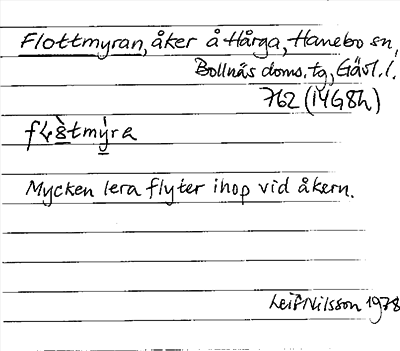 Flottmyran, åker å Hårga, Hanebo sn,
Bollnäs doms. tg, Gävl. l.
762 (14G8h)
Mycken lera flyter ihop vid åkern.
Leif Nilsson 1978